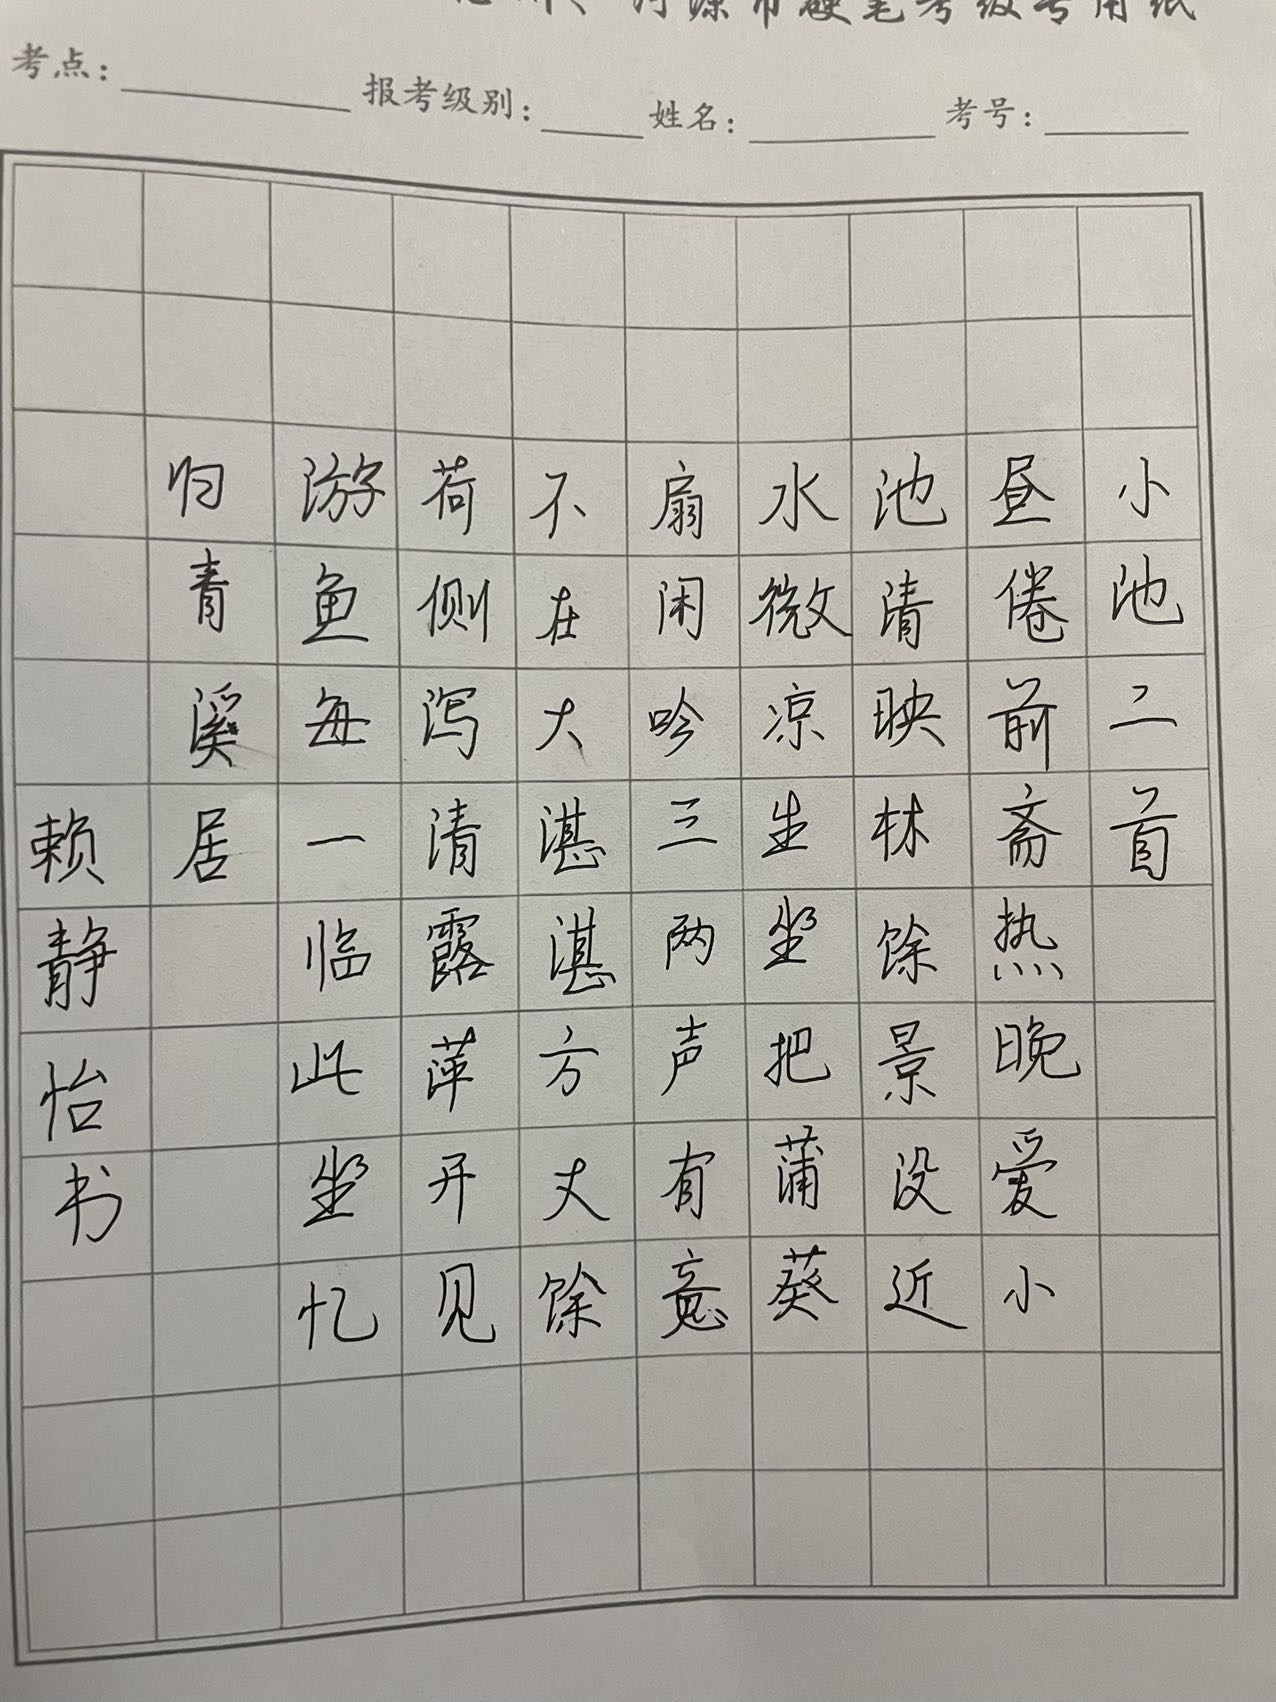 市硬笔考级专用纸
考点： 报考级别： 姓名： 考号：
小池二首
昼倦前斋热晚爱小
池清映林馀景没近
水微凉生坐把蒲葵
扇闲吟三两声有意
不在大湛湛方丈馀
荷侧泻清露萍开见
游鱼每一临此坐忆
归青溪居
赖静怡书